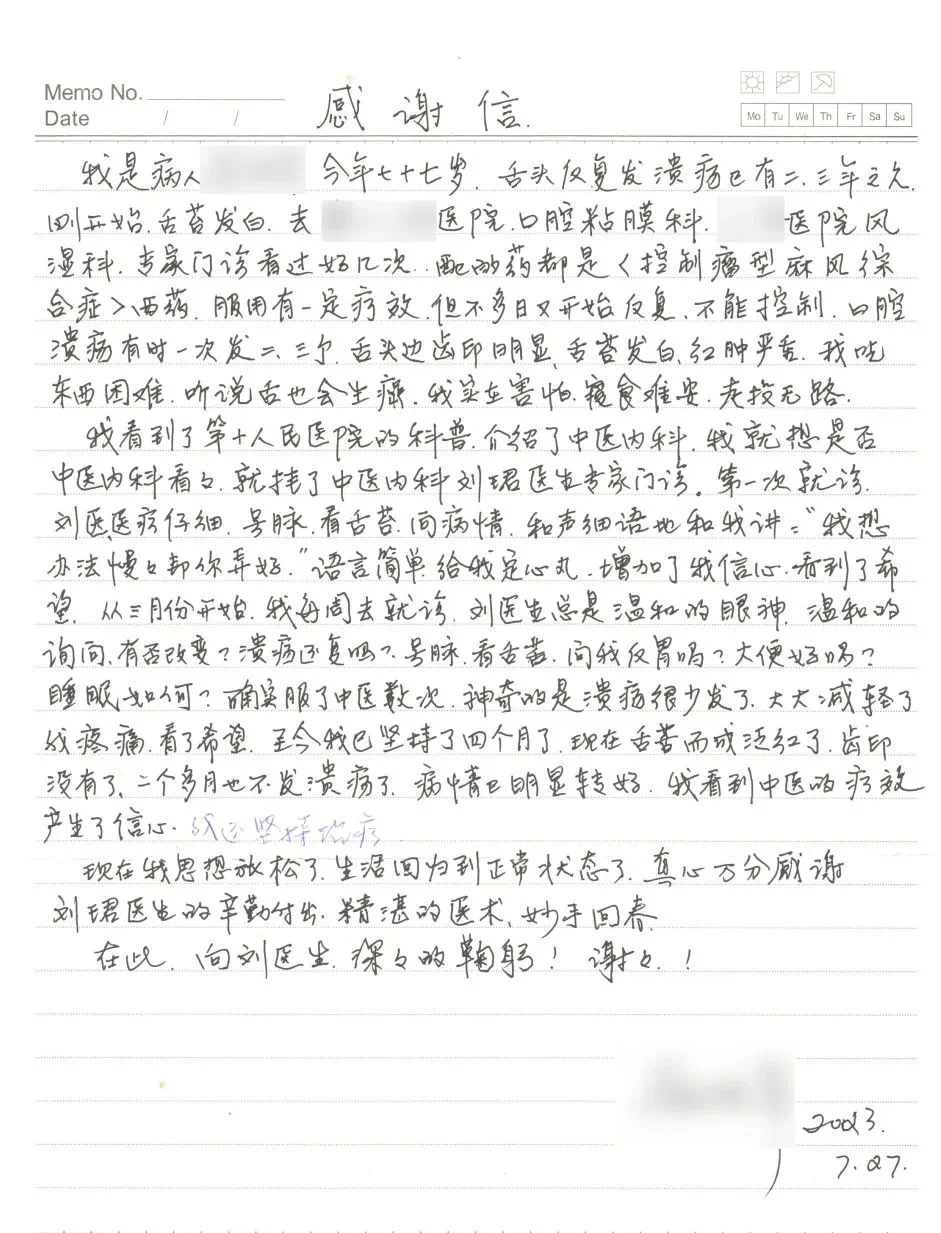 Memo No.
Date / /
感谢信.
Mo Tu We Th Fr Sa Su
我是病人 今年七十七岁. 舌头反复发溃疡已有二.三年之久.
刚开始.舌苔发白.去 医院.口腔粘膜科. 医院风
湿科.专家门诊看过好几次..配的药都是<控制痛型麻风综
合症>西药.服用有一定疗效.但不多日又开始反复.不能控制.口腔
溃疡有时一次发二.三个.舌头边齿印明显.舌苔发白、红肿严重.我吃
东西困难.听说舌也会生癌.我实在害怕.寝食难安.走投无路.
我看到了第十人民医院的科普.介绍了中医内科.我就想是否
中医内科看々.就挂了中医内科刘珺医生专家门诊。第一次就诊.
刘医医疗仔细.号脉.看舌苔.问病情.和声细语地和我讲:“我想
办法慢々帮你弄好.”语言简单.给我定心丸.增加了我信心.看到了希
望.从三月份开始.我每周去就诊.刘医生总是温和的眼神.温和的
询问.有否改变?溃疡还复吗?号脉.看舌苔.问我反胃吗?大便好吗?
睡眠如何?确实服了中医数次.神奇的是溃疡很少发了.大大减轻了
我疼痛.看了希望.至今我已坚持了四个月了.现在舌苔而成泛红了.齿印
没有了、二个多月也不发溃疡了.病情已明显转好.我看到中医的疗效
产生了信心.我还坚持治疗
现在我思想放松了.生活回归到正常状态了.真心万分感谢
刘珺医生的辛勤付出.精湛的医术.妙手回春.
在此.向刘医生.深々的鞠躬!谢々.!
2023.
7.27.